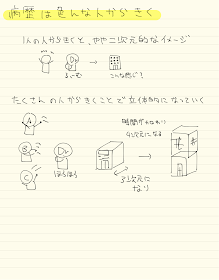 病歴は色んな人からきく
1人の人からきくと、やや二次元的なイメージ
Dr
こんな感じ？
たくさんの人からきくことで立体的になっていく
A
時間が加わり
4次元になる
B
Dr
C
ほうほう
3次元に
なり